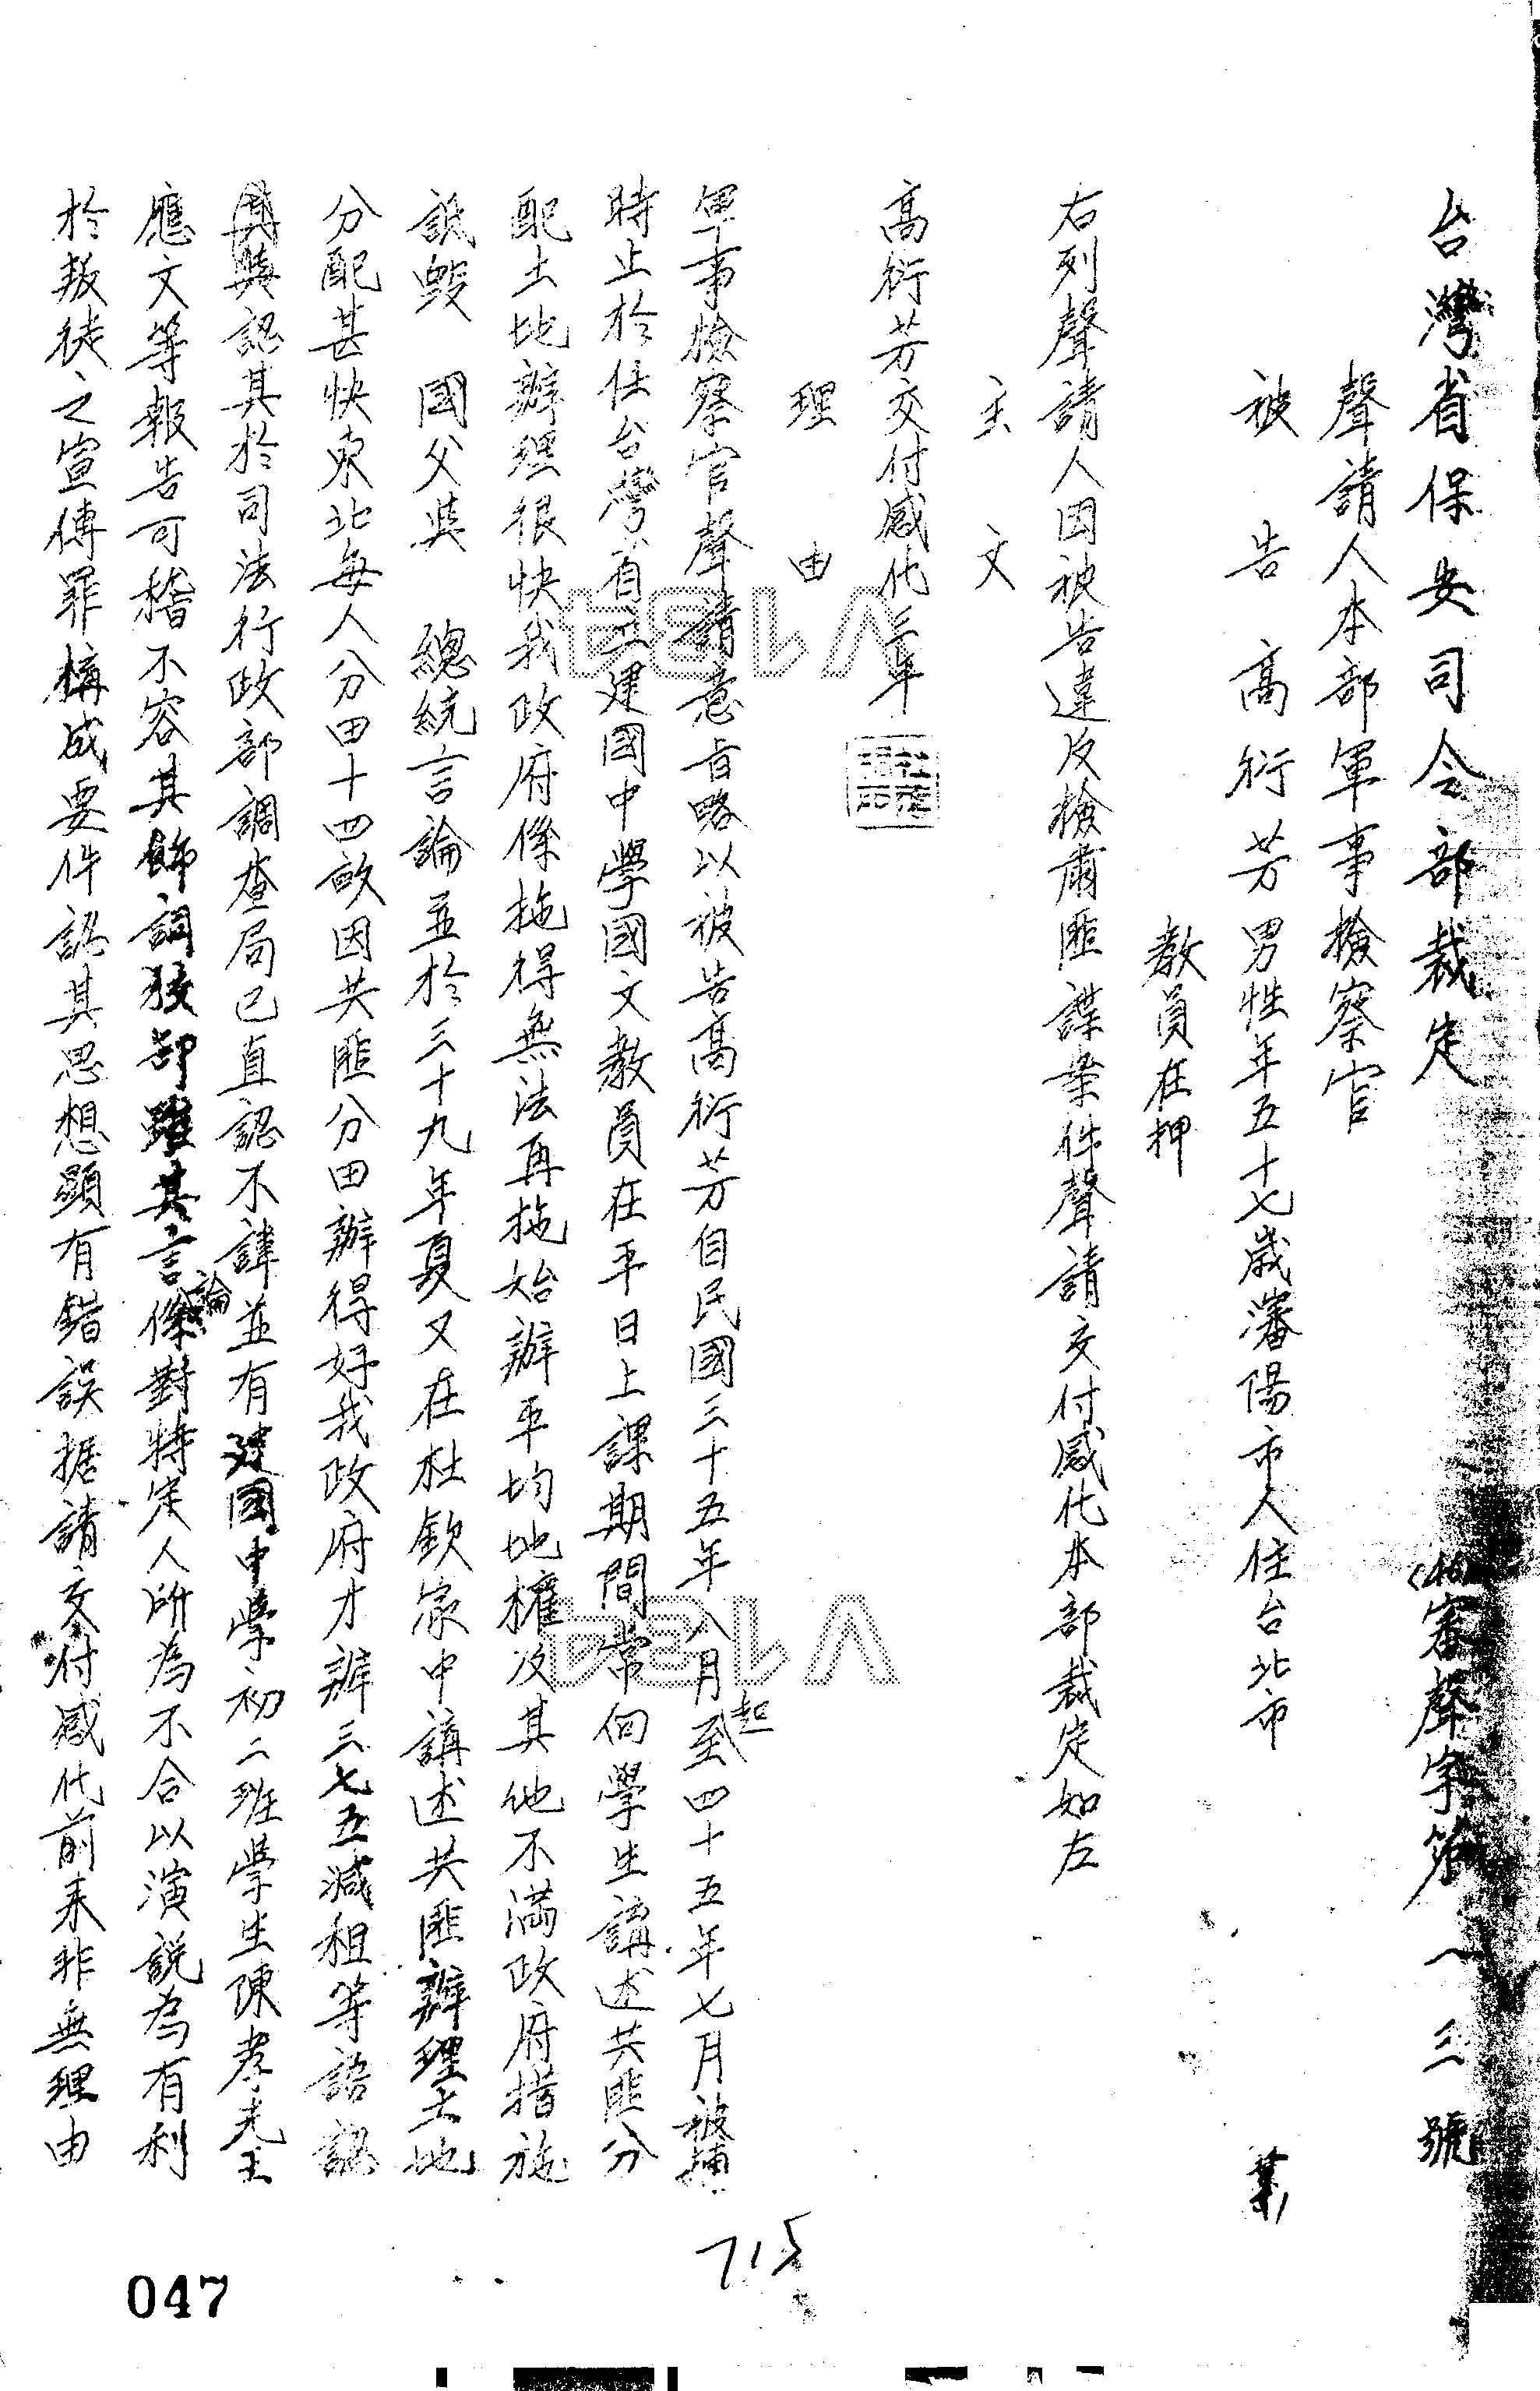 台灣省保安司令部裁定
(46)審聲字第一三號
聲請人本部軍事檢察官
被告高衍芳男性年五十七歲瀋陽市人住台北市
業
教員在押
右列聲請人因被告違反檢肅匪諜案件聲請交付感化本部裁定如左
主文
高衍芳交付感化三年
理由
軍事檢察官聲請意旨略以被告高衍芳自民國三十五年八月起至四十五年七月被捕
時止於任台灣省立建國中學國文教員在平日上課期間常向學生講述共匪分
配土地辦理很快我政府係拖得無法再拖始辦平均地權及其他不滿政府措施
詆毀 國父與 總統言論並於三十九年夏又在杜欽家中講述共匪辦理土地
分配甚快東北每人分田十四畝因共匪分田辦得好我政府才辦三七五減租等語認
與認其於司法行政部調查局已直認不諱並有建國中學初二班學生陳孝先王
應文等報告可稽不容其飾詞狡卸雖其言論係對特定人所為不合以演說為有利
於叛徒之宣傳罪構成要件認其思想顯有錯誤據請交付感化前來非無理由
715
047
V134
V134